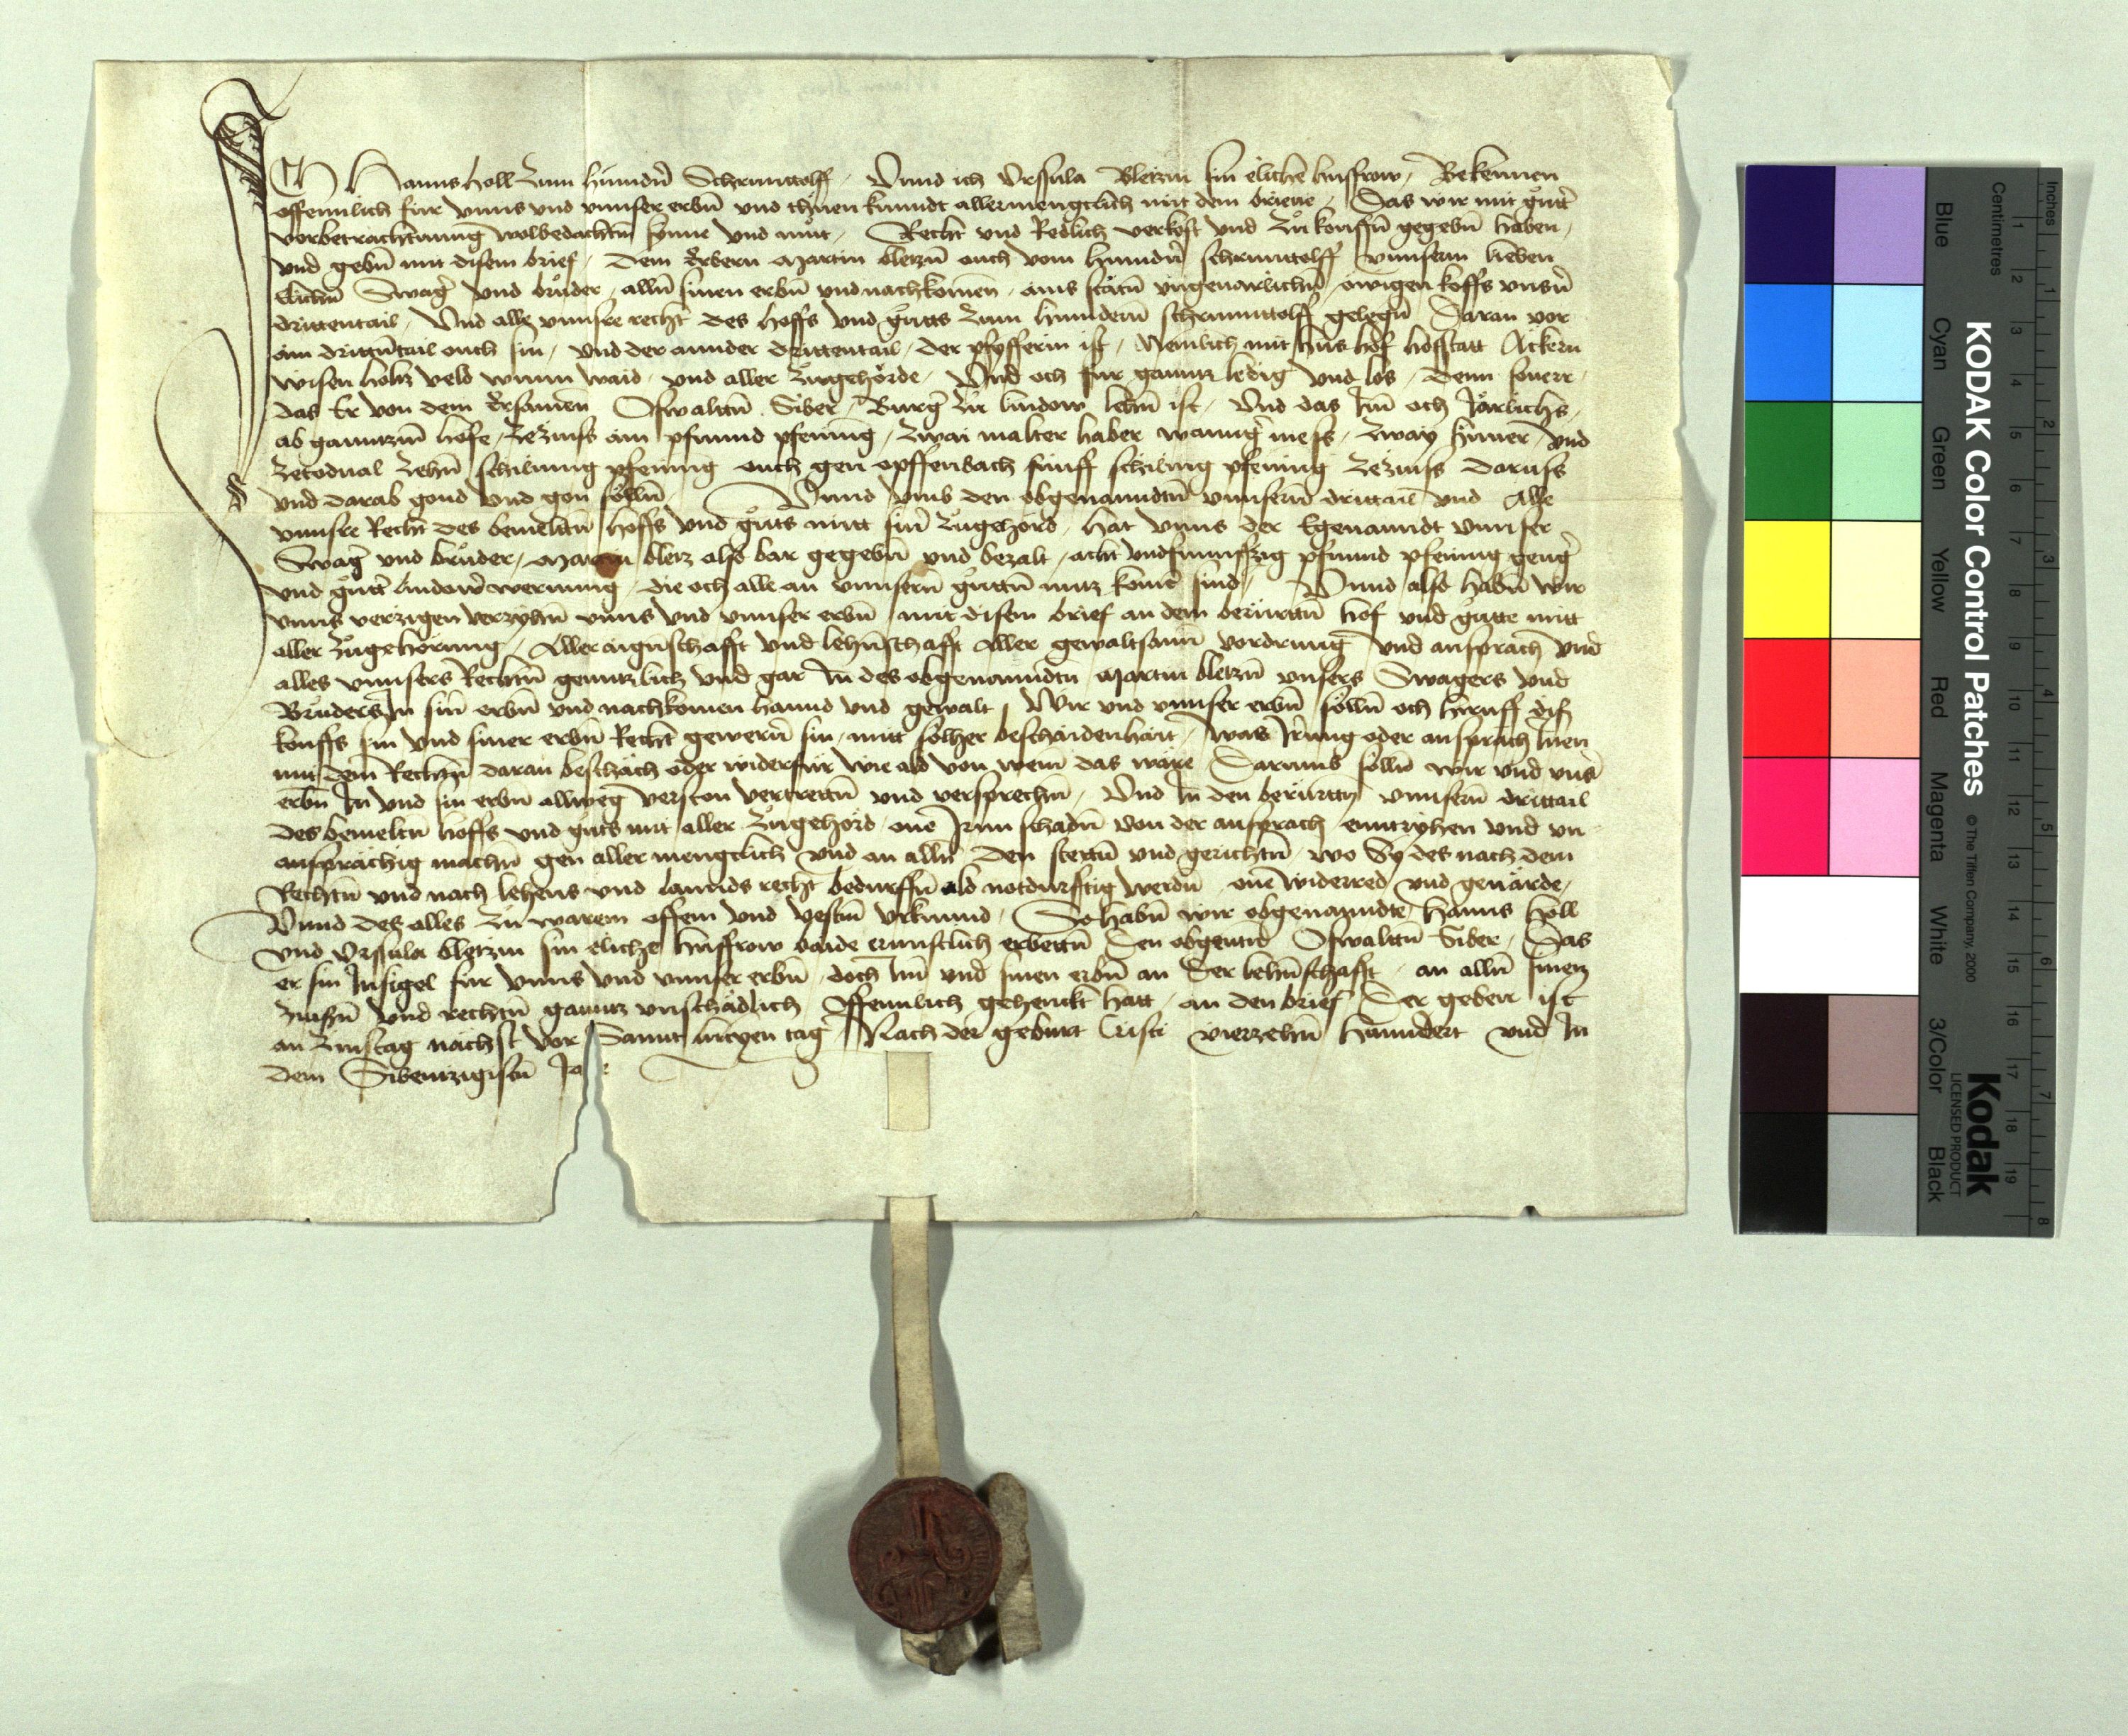 ICh Hanns Holl Zum hindn̄ Schrunttolff / Vnnd ich Vrsula Bletzin sin eliche husfrow / Bekennen
offennlich fur vnns vnd vnnser erbn̄ vnd thuen kunndt allermengclich mit dem brieue / Das wir mit gůtt̄
vorbetrachtnung wolbedachtm̄ synne vnd můt / Recht vnd Redlich verkoft vnd Zů kouffn̄ gegebn̄ haben /
vnd gebn̄ mit disem brief / Dem Erbern Martin bletzn̄ ouch vom hinndn̄ schrunttolff vnnserm lieben
elichn̄ Swaḡ vnd brůder / alln̄ sinen erbn̄ vnd nachkomen̄ / ains stätn̄ vngeuarlichn̄ / ewigen koffs vnsn̄
drittentail / Vnd alle vnnsre recht des hoffs vnd gůtts Zum hindern̄ schrunttolff gelegn̄ / Daran vor
ain drittn̄tail ouch sin / vnd der annder drittentail / der pfyfferin ist / Nemlich mit hus hof hofstatt Ackern
wisen holtz veld wunn waid / vnd aller Zůgehörde / Vnd och fur ganntz ledig vnd los / Denn souerr
das Er von dem Ersamen Oswaltn̄ Siber / Burḡ Zu lindow lehn̄ ist / Vnd das Im̄ och Järlichs /
ab ganntzm̄ hofe / Zezinss ain pfunnd pfenning / Zwai malter haber wannḡ mess / Zway hüner / vnd
Zetodual Zehn̄ schilling pfenning ouch gen opffenbach fünff schiling pfening Zezinss daruss
vnd darab gond vnd gon sölln̄ / Vnnd vmb den obgenanndtn̄ vnnsern̄ drittail vnd Alle
vnnsre Recht des bemeltn̄ hoffs vnd gůts mitt sin̄ zůgehörd / hat vnns der Egenanndt vnnser
Swaḡ vnd brůder / Martin bletz also bar gegebn̄ vnd bezalt / acht vndfunnffzig pfunnd pfening genḡ
vnd gůtt̄ lindow̄ werung / die och alle an vnnsern̄ gůttn̄ nutz komē sind / Vnnd also habn̄ wir
vnns verzigen verzyhn̄ vnns vnd vnnser erbn̄ / mit disem brief an dem berůrttn̄ hof vnd gůtte mitt
aller Zůgehörung / Aller aign̄schafft vnd lehn̄schafft Aller gewaltsami vordrunḡ vnd ansprach vnd
alles vnnsers Rechtn̄ genntzlich vnd gar In des obgenanndtn̄ Martin bletzn̄ vnsers Swagers vnd
Brůders In sin̄ erbn̄ vnd nachkomen hannd vnd gewalt / Wir vnd vnnser erbn̄ sölln̄ och hieruff diß
kouffs sin vnd siner erbn̄ Recht gewern̄ sin / mitt sölher beschaidenhait / was Irrung oder ansprach Inen
mit dem̄ Rechtn̄ daran beschäch oder widerfür wie ald von wem̄ das wäre / Darumb sölln̄ wir vnd vns̄
erbn̄ In vnd sin erbn̄ allweg verston vertrettn̄ vnd versprechn̄ / Vnd In den berürttn̄ vnnsern̄ drittail
des bemeltn̄ hoffs vnd gůts mit aller Zůgehörd / onē Irnn schadn̄ von der ansprach / enntzyhen vnd vn
ansprächig machn̄ gen aller mengclich vnd an alln̄ den stettn̄ vnd gerichtn̄ / wo Sy des nach dem
Rechtn̄ vnd nach lehens vnd lannds recht bedurffn̄ ald notdurfftig werdn̄ / onē widerred vnd geuärde /
Vnnd des alles Zu warem offem vnd vestm̄ vrkunnd / So habn̄ wir obgenanndte / Hanns Holl
vnd vrsula bletzin sin eliche husfrow baide ernnstlich erbettn̄ Den obgentn̄ Oswaltn̄ Siber / Das
er sin Insigel fur vnns vnd vnnser erbn̄ / doch Im̄ vnd sinen erbn̄ an der lehn̄schafft / an alln̄ sinen
Zinsn̄ vnd rechtn̄ ganntz vnschädlich offennlich gehenckt hatt / an den brief / Der geben ist
an Zinstag nächst vor Sannt lucyen tag / Nach der geburt Cristi vierzehn̄ hunndert vnd In
dem Sibentzigistn̄ Ja